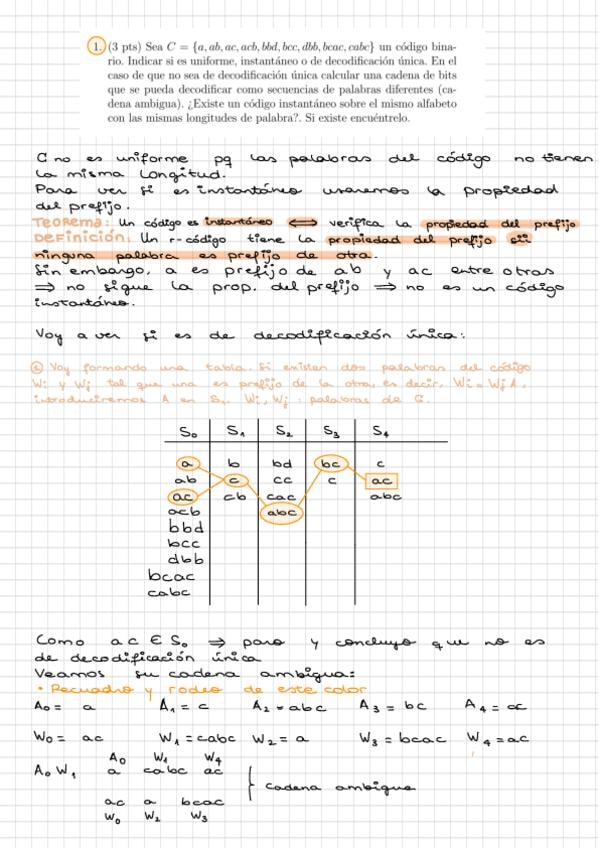 1. (3 pts) Sea C = {a, ab, ac, acb, bbd, bcc, dbb, bcac, cabc} un código bina-
rio. Indicar si es uniforme, instantáneo o de decodificación única. En el
caso de que no sea de decodificación única calcular una cadena de bits
que se pueda decodificar como secuencias de palabras diferentes (ca-
dena ambigua). ¿Existe un código instantáneo sobre el mismo alfabeto
con las mismas longitudes de palabra?. Si existe encuéntrelo.
C no es uniforme pq las palabras del código no tienen
la misma longitud.
Para ver si es instantáneo usaremos la propiedad
del prefijo.
Teorema: Un código es instantáneo ⟺ verifica la propiedad del prefijo
Definición: Un r-código tiene la propiedad del prefijo sii
ninguna palabra es prefijo de otra.
Sin embargo, a es prefijo de ab y ac entre otras
⟹ no sigue la prop. del prefijo ⟹ no es un código
instantáneo.
Voy a ver si es de decodificación única:
Voy formando una tabla. Si existen dos palabras del código
Wi y Wj tal que una es prefijo de la otra, es decir, Wi = Wj A,
introduciremos A en S₁. Wi, Wj : palabras de C.
S₀ S₁ S₂ S₃ S₄
a b bd bc c
ab c cc c ac
ac cb cac abc
acb abc
bbd
bcc
dbb
bcac
cabc
Como ac ∈ S₀ ⟹ paro y concluyo que no es
de decodificación única
Veamos su cadena ambigua:
• Recuadro y rodeo de este color
A₀ = a A₁ = c A₂ = abc A₃ = bc A₄ = ac
W₀ = ac W₁ = cabc W₂ = a W₃ = bcac W₄ = ac
A₀ W₁ W₄
A₀ W₁ a cabc ac
cadena ambigua
ac a bcac
W₀ W₂ W₃